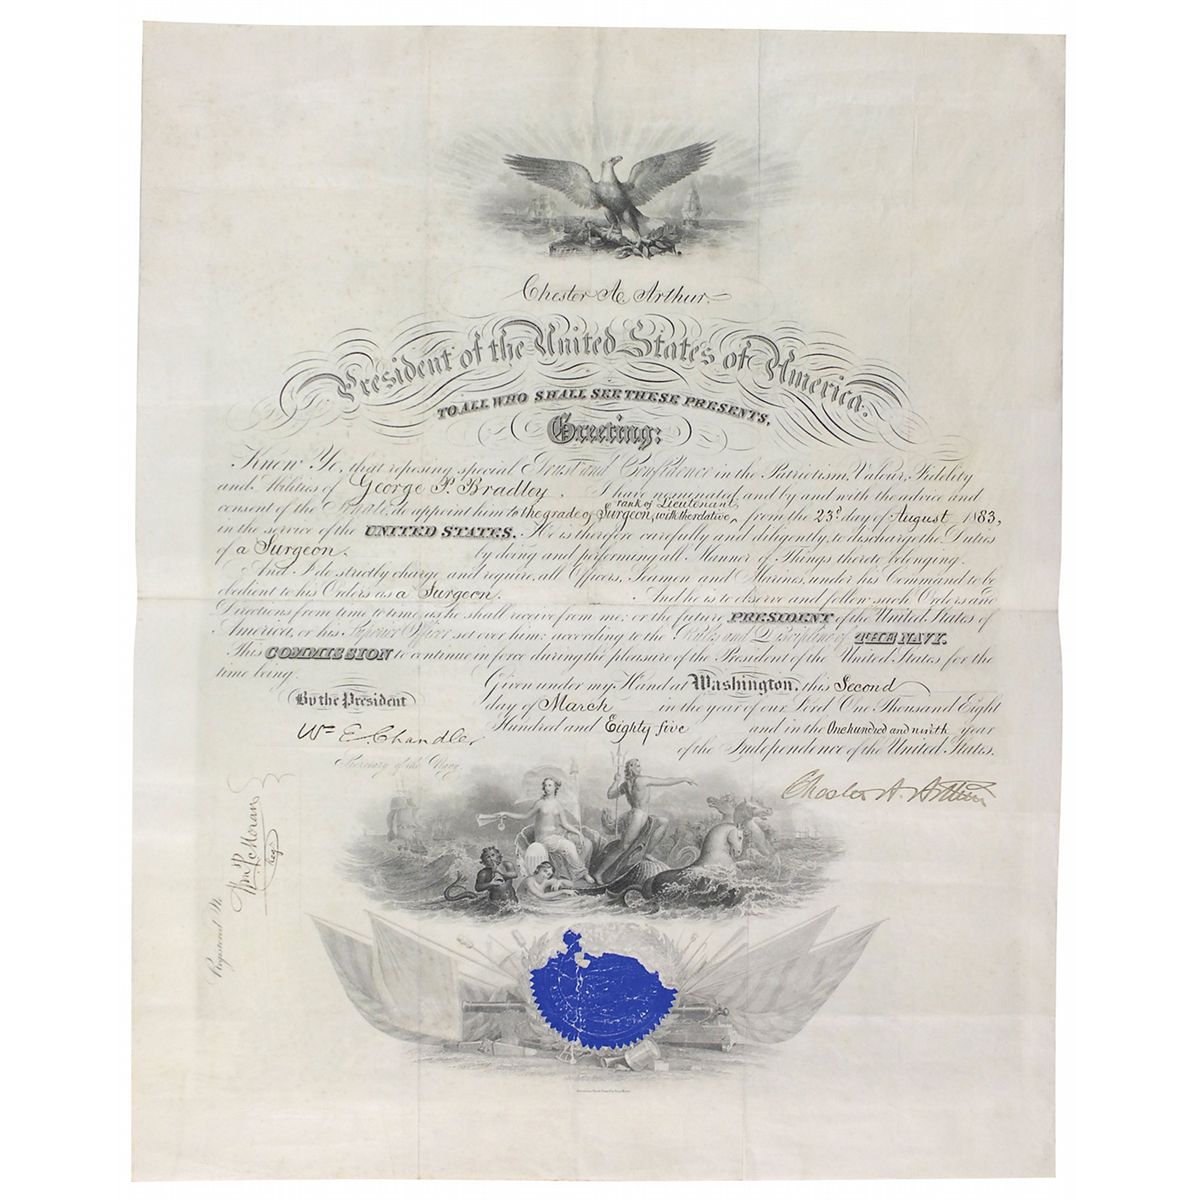 Chester A. Arthur.
President of the United States of America.
TO ALL WHO SHALL SEE THESE PRESENTS,
Greeting:
Know Ye, that reposing special Trust and Confidence in the Patriotism, Valour, Fidelity
and Abilities of George P. Bradley, I have nominated and by and with the advice and
rank of Lieutenant,
consent of the Senate, do appoint him to the grade of Surgeon, with the relative from the 23d day of August 1883,
in the service of the UNITED STATES. He is therefore carefully and diligently, to discharge the Duties
of a Surgeon. by doing and performing all Manner of Things thereto belonging.
And I do strictly charge and require, all Officers, Seamen and Marines, under his Command to be
obedient to his Orders as a Surgeon. And he is to observe and follow such Orders and
Directions from time to time, as he shall receive from me; or the future PRESIDENT of the United States of
America, or his Superior Officer set over him; according to the Rules and Discipline of THE NAVY.
This COMMISSION to continue in force during the pleasure of the President of the United States for the
time being.
Given under my Hand at Washington, this Second
By the President
day of March in the year of our Lord One Thousand Eight
Wm E. Chandler
Hundred and Eighty five and in the One hundred and ninth year
Secretary of the Navy.
of the Independence of the United States.
Chester A. Arthur
Registered No.
Wm P. Moran
Reg.